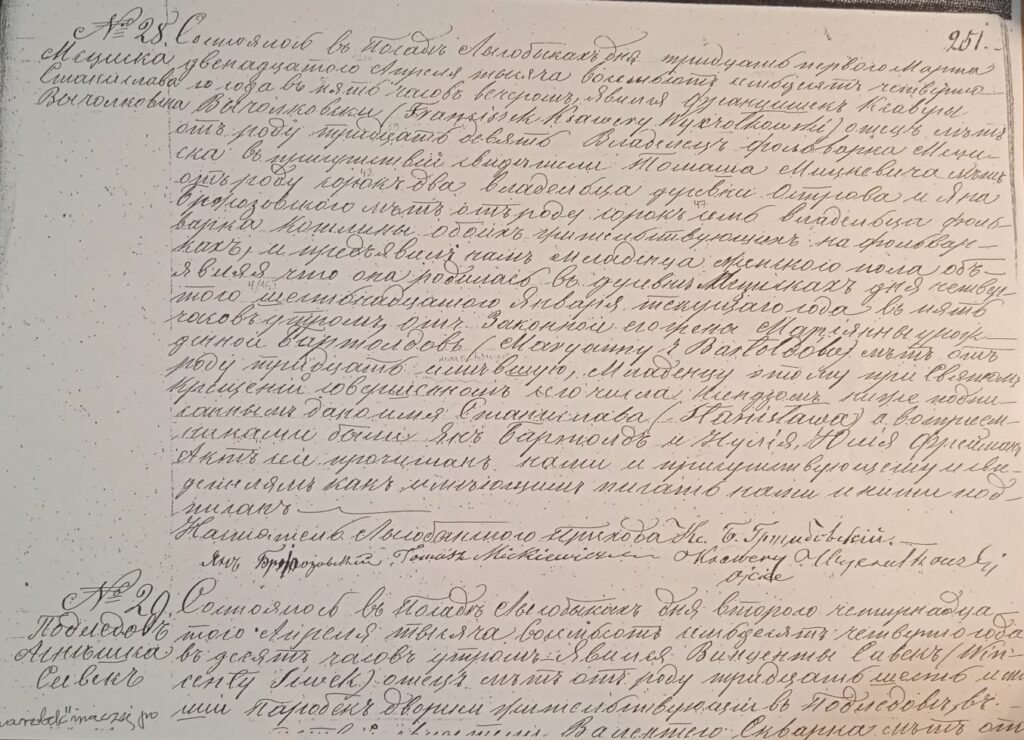 251.
№ 28.
Мециска
Станислава
Вычолковска
Состоялось въ Посадѣ Лысобыкахъ дня тридцать перваго Марта
двенадцатого Апреля тысяча восемьсотъ семьдесятъ четверта-
го года въ пять часовъ вечеромъ, явился Францишекъ Ксаверы
Вычолковски (Franciszek Ksawery Wyczołkowski) отецъ лѣтъ
отъ роду тридцать девять Владелецъ фольварка Меци-
ска въ присутствіи свидетелей Томаша Мицкевича лѣтъ
отъ роду сорокъ два владельца деревни Острова и Яна
Брюзовского лѣтъ отъ роду сорокъ семь владельца фоль-
варка Котлины обоихъ жительствующихъ на фольвар-
кахъ, и предъявилъ намъ младенца женского пола объ-
являя что она родилась въ деревни Мецискахъ дня четвер-
4/16.1
того шестьнадцатого Января текущаго года въ пять
часовъ утромъ, отъ Законной его жены Маріянны урож-
денной Бартолдовъ (Maryanny z Bartoldów) лѣтъ отъ
роду тридцать имѣвшую, Младенцу этому при Святомъ
крещеніи совершенномъ сего числа Ксендзомъ ниже подпи-
саннымъ дано имя Станислава (Stanisława) а воспріем-
никами были Янъ Бартолдъ и Юлія Фрейманъ
Актъ сей прочитанъ нами и присутствующему и сви-
детелямъ какъ умѣющимъ писать нами и ними под-
писанъ
Настоятель Лысобыкского прихода Кс. Б. Гржибовскій.
Янъ Брюзовский Tomasz Mickiewicz Ksawery Wyczołkowski
ojciec
№ 29.
Подлодовъ
Агнешка
Сивекъ
Состоялось въ Посадѣ Лысобыкахъ дня второго четырнадца
того Апреля тысяча восемьсотъ семьдесятъ четвертого года
въ десять часовъ утромъ явился Винценты Сивекъ (Win-
centy Siwek) отецъ лѣтъ отъ роду тридцать шесть
Паробекъ дворный жительствующій въ Подлодовѣ, въ
Валентего Скварка лѣтъ отъ
"parobek" inaczej po